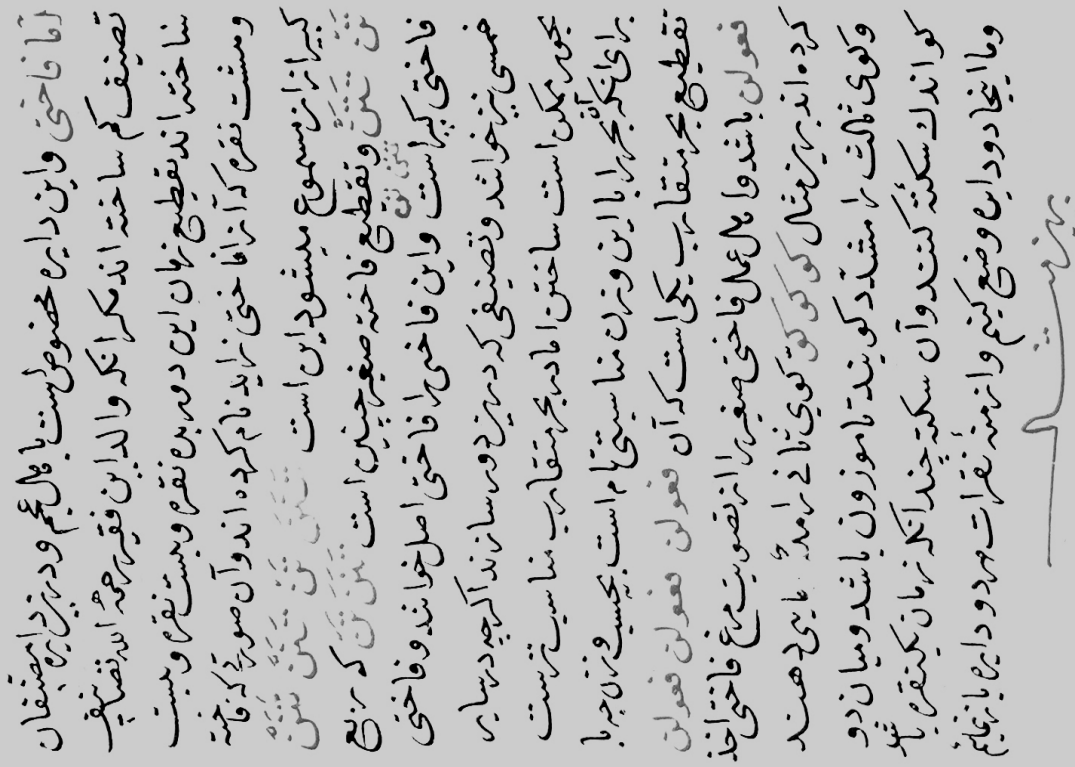 اما فاختی و این دایره مخصوص است باهل عجم و درین دایره مصنفان
تصنیف کم ساخته اند مکر انکه والد این فقیر رحمه الله تصانیف
ساخته اند تقطیع زمان این دور بده نقره و بیست نقره و بیست
و هشت نقره که آنرا فاختی زاید نام کرده اند و آن صورتی که فاخته
کبیر از ان مسموع میشود این است تنن تنن تن تنن تنن
تنن تنن و تقطیع فاخته صغیر چنین است تنن تن که ربع
تنن تنن
فاختی کبیر است و این فاختی را فاختی اصل خوانند و فاختی
خمسی نیز خوانند و تصنیفی که درین دور سازند اکرچه در سایر
بحور ممکن است ساختن اما در بحر متقارب مناسب ترست
برای انکه آن بحر را با این وزن مناسبتی تام است بحسب وزن چه با
تقطیع بحر متقارب یکی است که آن فعولن فعولن فعولن
فعولن باشد و اهل عمل فاختی صغیر را از تصویت مرغ فاختی اخذ
کرده اند برین مثال کو کو کو کوی ثانی را مد ما یی دهند
و کوی ثالث را مشدد کویند تا موزون باشد و میان دو
کو اندك سکته کنند و آن سکته چندانکه زمان یکنقره باشد
و ما اینجا دو دایره وضع کنیم و ازمنه نقرات هر دو دایره باز نماییم
برین مثال